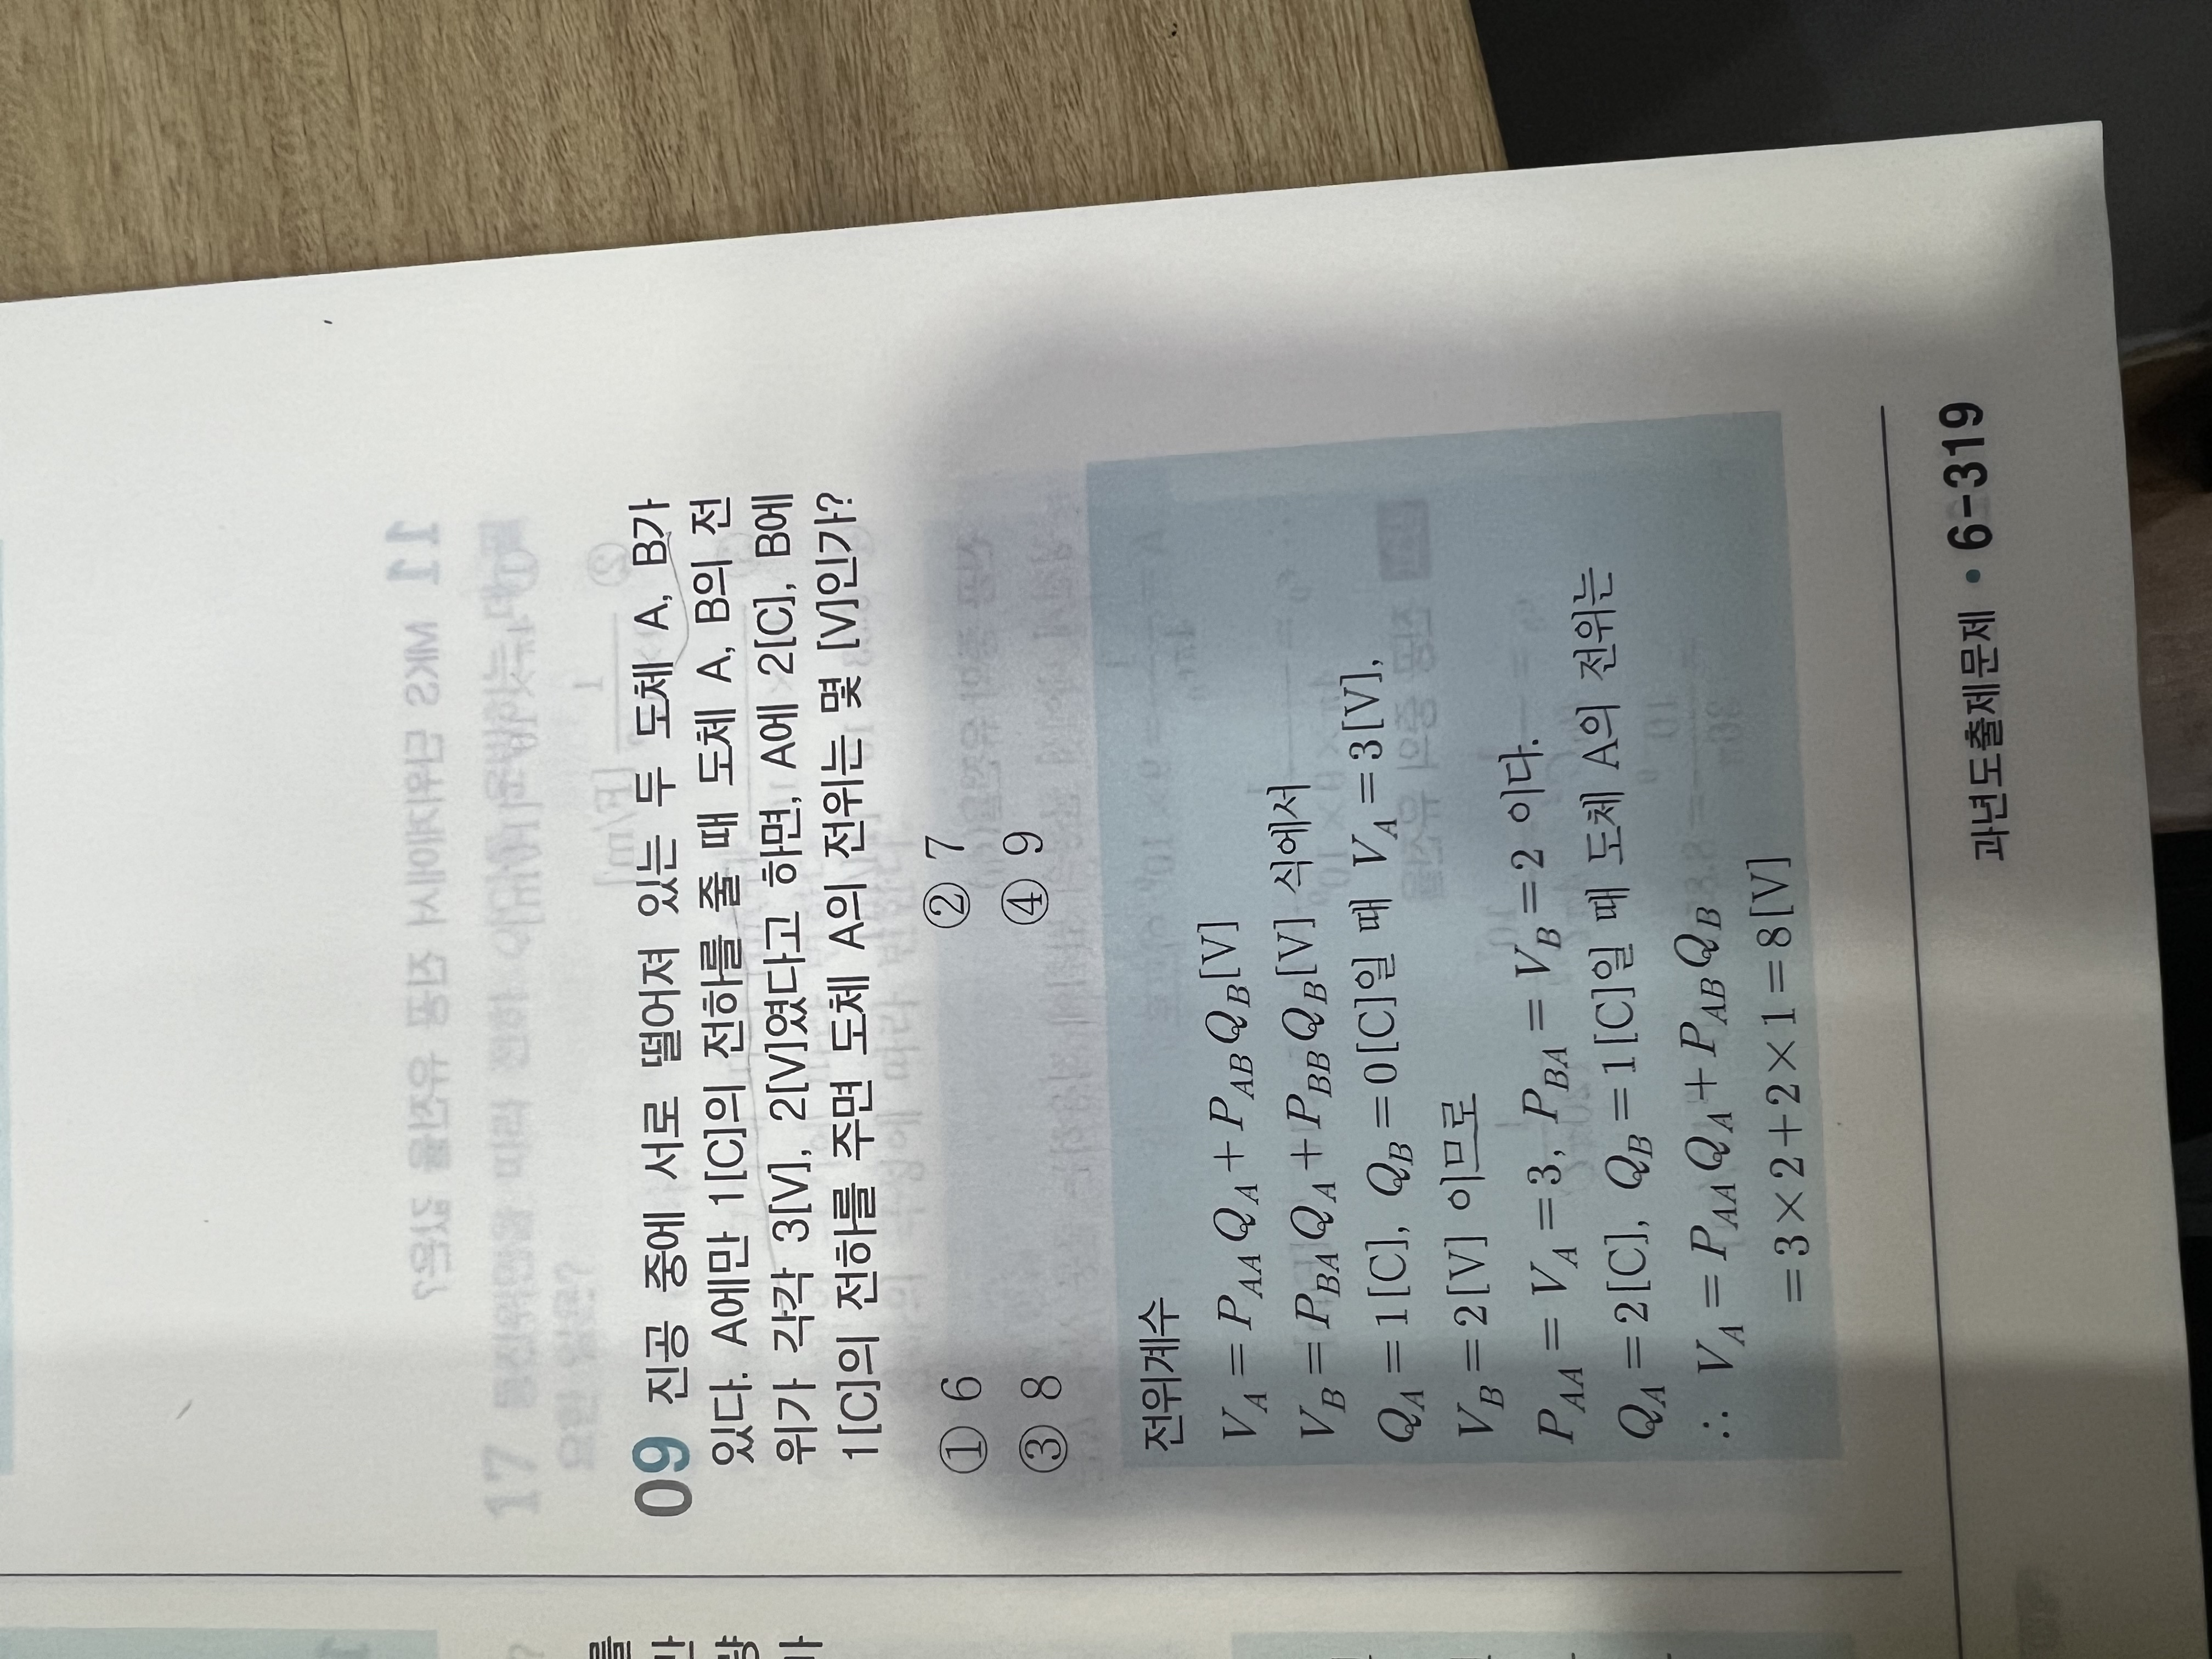 09 진공 중에 서로 떨어져 있는 두 도체 A, B가
있다. A에만 1[C]의 전하를 줄 때 도체 A, B의 전
위가 각각 3[V], 2[V]였다고 하면, A에 2[C], B에
1[C]의 전하를 주면 도체 A의 전위는 몇 [V]인가?
① 6 ② 7
③ 8 ④ 9
전위계수
V_A = P_AA Q_A + P_AB Q_B [V]
V_B = P_BA Q_A + P_BB Q_B [V] 식에서
Q_A = 1[C], Q_B = 0[C]일 때 V_A = 3[V],
V_B = 2[V] 이므로
P_AA = V_A = 3, P_BA = V_B = 2 이다.
Q_A = 2[C], Q_B = 1[C]일 때 도체 A의 전위는
∴ V_A = P_AA Q_A + P_AB Q_B
= 3×2+2×1 = 8[V]
과년도출제문제 • 6-319